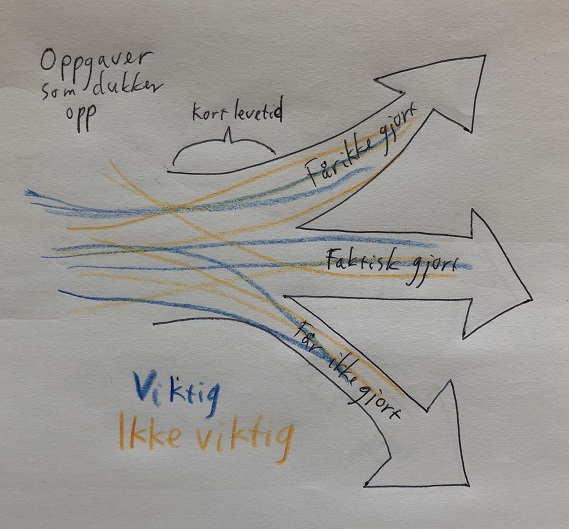 Oppgaver
som dukker
opp
Kort levetid
Får ikke gjort
Faktisk gjort
Får ikke gjort
Viktig
Ikke viktig